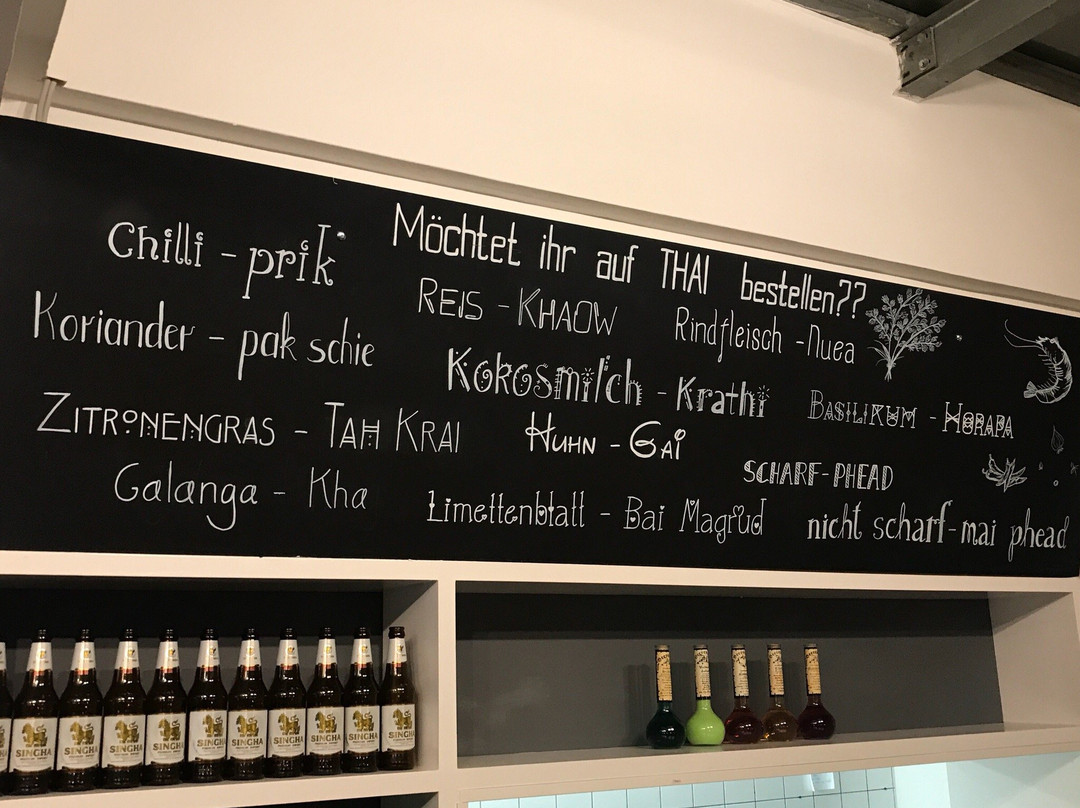 Möchtet ihr auf THAI bestellen??
Chilli - prik
Koriander - pak schie
ZITRONENGRAS - TAH KRAI
Galanga - Kha
REIS - KHAOW
Kokosmilch - Krathi
HUHN - GAI
Limettenblatt - Bai Magrud
Rindfleisch - Nuea
BASILIKUM - HORAPA
SCHARF - PHEAD
nicht scharf - mai phead
SINGHA
SINGHA
SINGHA
SINGHA
SINGHA
SINGHA
SINGHA
SINGHA
SINGHA
SINGHA